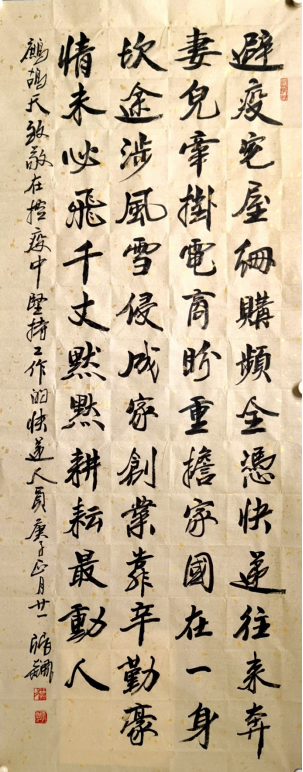 避疫宅屋網購頻全憑快递往来奔
妻兒牽掛電商盼重擔家國在一身
坎途涉風雪侵成家創業靠辛勤豪
情未必飛千丈默默耕耘最動人
鹧鸪天致敬在控疫中坚持工作的快递人员庚子正月廿一